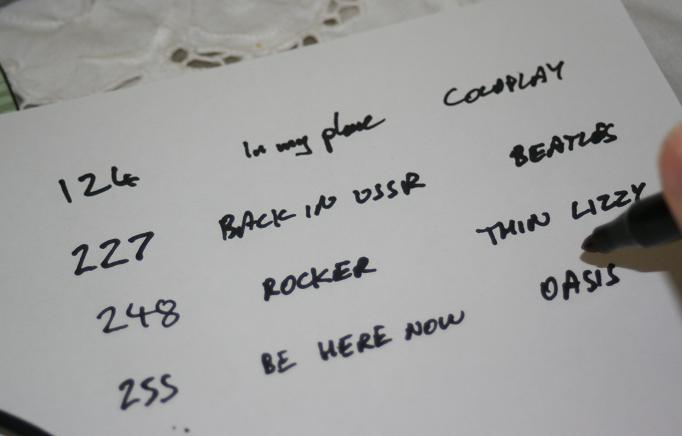 124 In my place COLDPLAY
227 BACK IN USSR BEATLES
248 ROCKER THIN LIZZY
255 BE HERE NOW OASIS